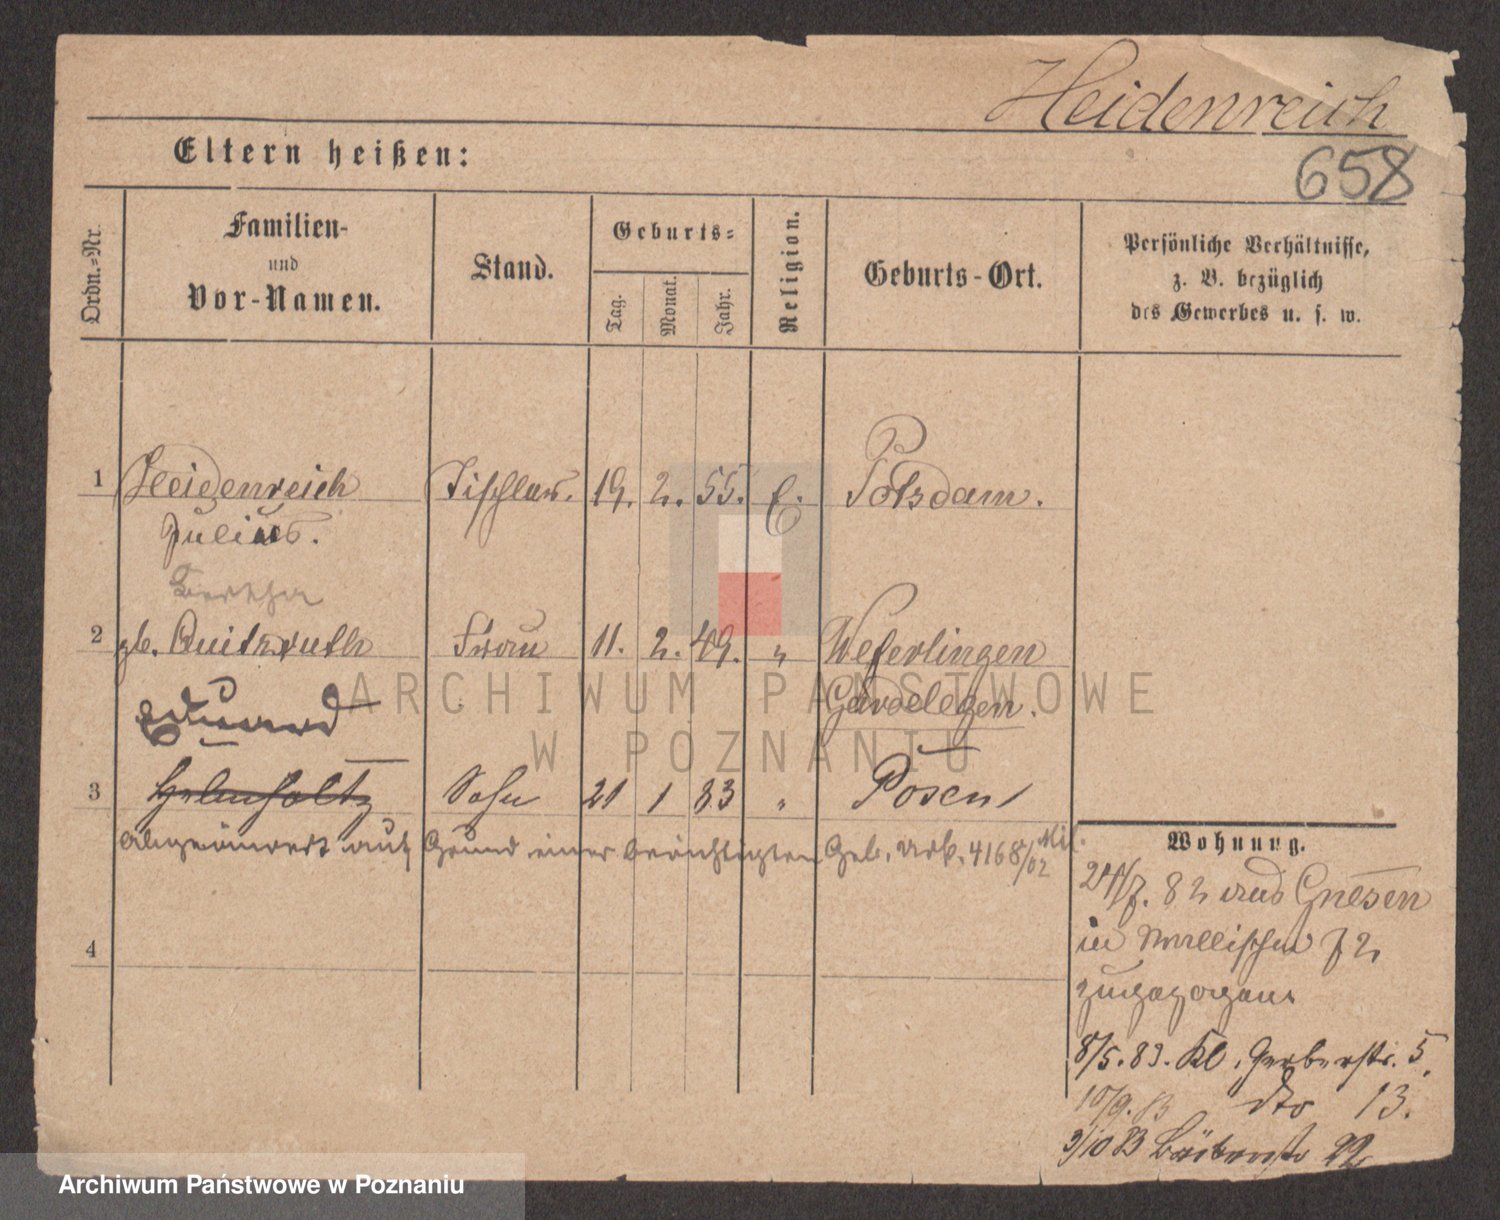 Heidenreich
658
Eltern heißen:
Ordn.-Nr.
Familien-
und
Vor-Namen.
Stand.
Geburts-
Tag.
Monat.
Jahr.
Religion.
Geburts-Ort.
Persönliche Verhältnisse,
z. B. bezüglich
des Gewerbes u. s. w.
1 Heidenreich Tischler. 19. 2. 55. E. Potsdam.
Julius.
Bertha
2 gb. Frau 11. 2. 49. " Weferlingen
Gardelegen.
Eduard
3 Sohn 21 1 83 " Posen
abgeändert auf Grund einer berichtigten Geb. Urk. 4168/02 Mil.
4
Wohnung.
24/7. 82 aus Gnesen
in Wallischei 72
zugezogen
8/5. 83. Kl. Gerberstr. 5.
10/9. 83 dto 13.
3/10 83 22
ARCHIWUM PAŃSTWOWE
W POZNANIU
Archiwum Państwowe w Poznaniu